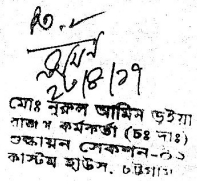 ২৮/৪/১৭
মোঃ নুরুল আমিন ভূইয়া
রাজস্ব কর্মকর্তা (চঃ দাঃ)
শুল্কায়ন সেকশন-
কাস্টম হাউস, চট্টগ্রাম